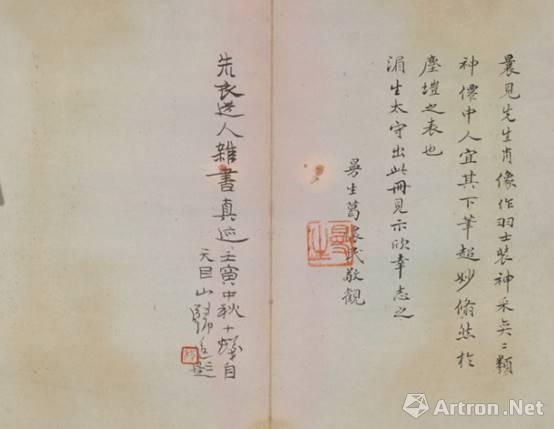 曩見先生肖像作羽士裝神采奕〻類
神僊中人宜其下筆超妙翛然於
塵壒之表也
湄生太守出此冊見示欣幸志之
生葛民敬觀
朱衣道人雜書真迹壬寅中秋十發自
天目山歸題
Artron.Net